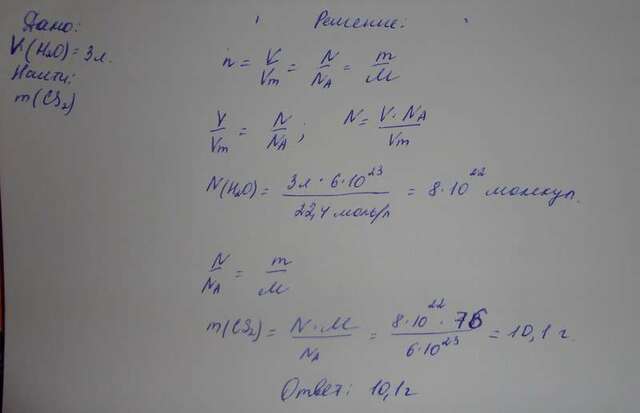 Дано:
V(H₂O) = 3 л.
Найти:
m(CS₂)
Решение:
n = V/Vm = N/NA = m/M
V/Vm = N/NA; N = V · NA/Vm
N(H₂O) = 3 л · 6 · 10²³/22,4 моль/л = 8 · 10²² молекул.
N/NA = m/M
m(CS₂) = N · M/NA = 8 · 10²² · 76/6 · 10²³ = 10,1 г.
Ответ: 10,1 г